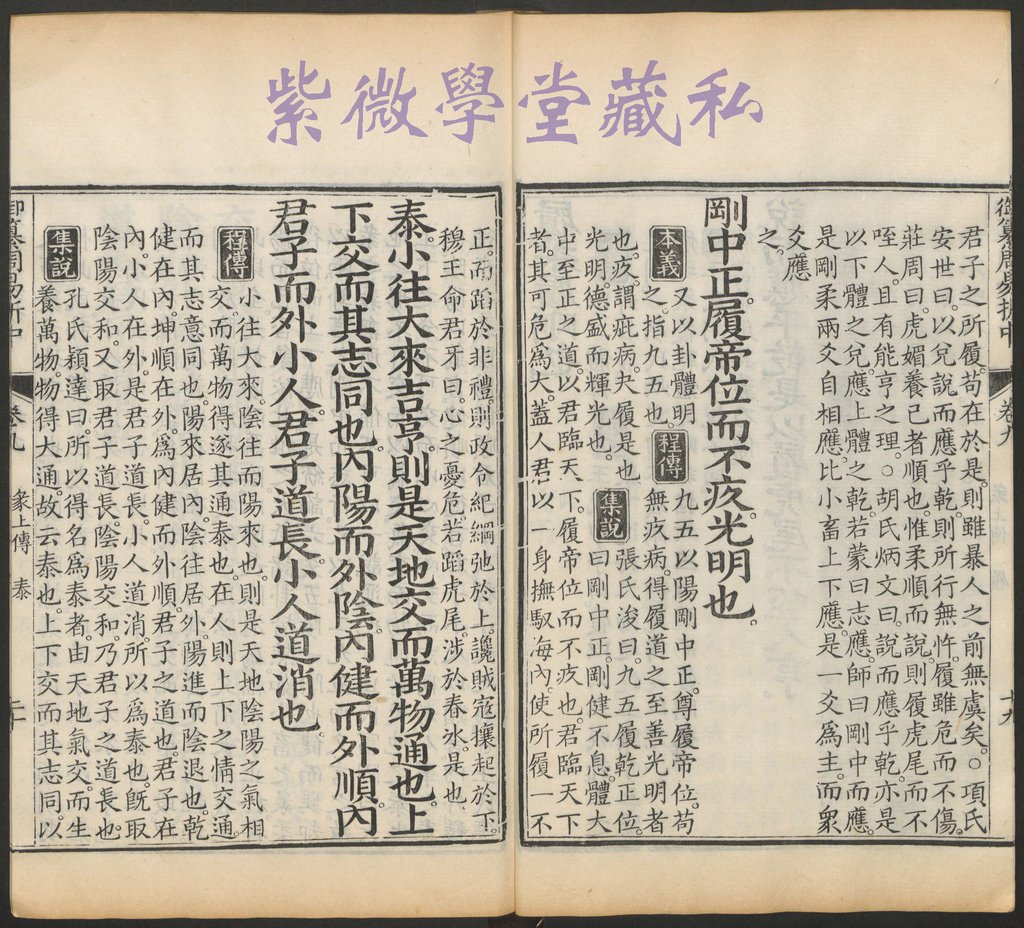 紫微學堂藏私
御纂周易折中
卷九
十九
君子之所履。苟在於是。則雖暴人之前無虞矣。○項氏
安世曰。以兌說而應乎乾。則所行無忤。履雖危而不傷。
莊周曰。虎媚養已者順也。惟柔順而說。則履虎尾而不
咥人。且有能亨之理。○胡氏炳文曰。說而應乎乾。亦是
以下體之兌。應上體之乾。若蒙曰志應。師曰剛中而應。
是剛柔兩爻自相應。比小畜上下應。是一爻爲主而衆
爻應
之。
剛中正。履帝位而不疚。光明也。
本義 又以卦體明之。指九五也。
程傳 九五以陽剛中正。尊履帝位。苟無疚病。得履道之至善光明者
也。疚。謂疵病。夬履是也。
集說 張氏浚曰。九五履乾正位。曰剛中正。剛健不息。體大
光明。德盛而輝光也。
中至正之道。以君臨天下。履帝位而不疚也。君臨天下
者。其可危爲大。蓋人君以一身撫馭海內。使所履一不
正。而蹈於非禮。則政令紀綱弛於上。讒賊寇攘起於下。
穆王命君牙曰。心之憂危。若蹈虎尾。涉於春冰。是也。
泰。小往大來。吉亨。則是天地交而萬物通也。上
下交而其志同也。內陽而外陰。內健而外順。內
君子而外小人。君子道長。小人道消也。
程傳 小往大來。陰往而陽來也。則是天地陰陽之氣相
交。而萬物得遂其通泰也。在人則上下之情交通。
而其志意同也。陽來居內。陰往居外。陽進而陰退也。乾
健在內。坤順在外。爲內健而外順。君子之道也。君子在
內。小人在外。是君子道長。小人道消。所以爲泰也。旣取
陰陽交和。又取君子道長。陰陽交和。乃君子之道長也。
集說 孔氏穎達曰。所以得名爲泰者。由天地氣交。而生
養萬物。物得大通。故云泰也。上下交而其志同。以
御纂周易折中
卷九
彖上傳 泰
二十